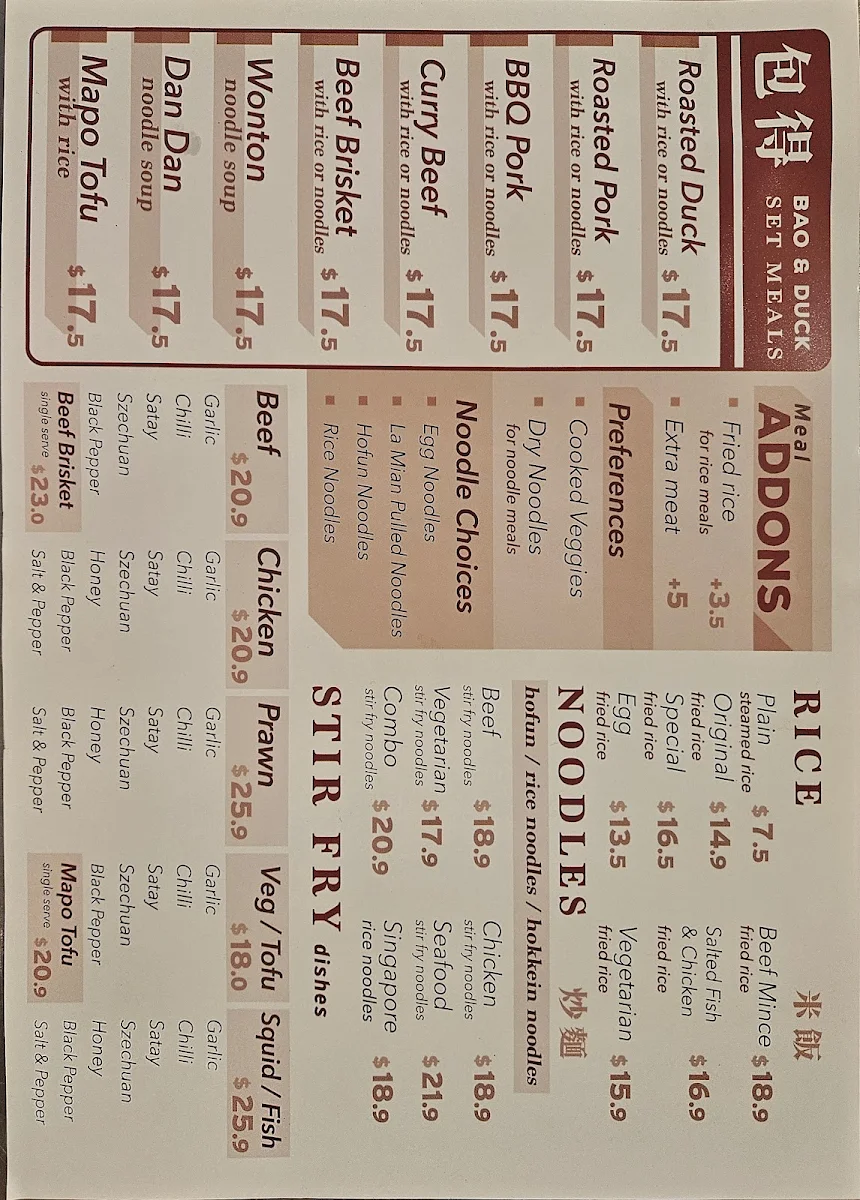 包得
BAO & DUCK
SET MEALS
Roasted Duck
with rice or noodles $17.5
Roasted Pork
with rice or noodles $17.5
BBQ Pork
with rice or noodles $17.5
Curry Beef
with rice or noodles $17.5
Beef Brisket
with rice or noodles $17.5
Wonton
noodle soup $17.5
Dan Dan
noodle soup $17.5
Mapo Tofu
with rice $17.5
Meal
ADDONS
Fried rice
for rice meals +3.5
Extra meat +5
Preferences
Cooked Veggies
Dry Noodles
for noodle meals
Noodle Choices
Egg Noodles
La Mian Pulled Noodles
Hofun Noodles
Rice Noodles
RICE 米飯
Plain
steamed rice $7.5
Original
fried rice $14.9
Special
fried rice $16.5
Egg
fried rice $13.5
Beef Mince
fried rice $18.9
Salted Fish
& Chicken
fried rice $16.9
Vegetarian
fried rice $15.9
NOODLES 炒麵
hofun / rice noodles / hokkein noodles
Beef
stir fry noodles $18.9
Vegetarian
stir fry noodles $17.9
Combo
stir fry noodles $20.9
Chicken
stir fry noodles $18.9
Seafood
stir fry noodles $21.9
Singapore
rice noodles $18.9
STIR FRY dishes
Beef
$20.9
Garlic
Chilli
Satay
Szechuan
Black Pepper
Beef Brisket
single serve $23.0
Chicken
$20.9
Garlic
Chilli
Satay
Szechuan
Honey
Black Pepper
Salt & Pepper
Prawn
$25.9
Garlic
Chilli
Satay
Szechuan
Honey
Black Pepper
Salt & Pepper
Veg / Tofu
$18.0
Garlic
Chilli
Satay
Szechuan
Black Pepper
Mapo Tofu
single serve $20.9
Squid / Fish
$25.9
Garlic
Chilli
Satay
Szechuan
Honey
Black Pepper
Salt & Pepper